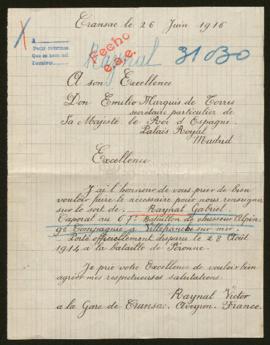 Cransac le 26 Juin 1916
X
Fecho
Raynal
31030
A son Excellence
Don Emilio Marquis de Torres
secrétaire particulier de
Sa Majesté le Roi d'Espagne
Palais Royal
Madrid
Excellence
J'ai l'honneur de vous prier de bien
vouloir faire le nécessaire pour nous renseigner
sur le sort de: Raynal Gabriel
Caporal au 67e Bataillon de chasseurs Alpins
9e Compagnie à Villefranche sur mer.
Porté officiellement disparu le 28 Août
1914 à la bataille de Péronne.
Je prie votre Excellence de vouloir bien
agréer mes respectueuses salutations.
Raynal Victor
a la Gare de Cransac, Aveyron. France.